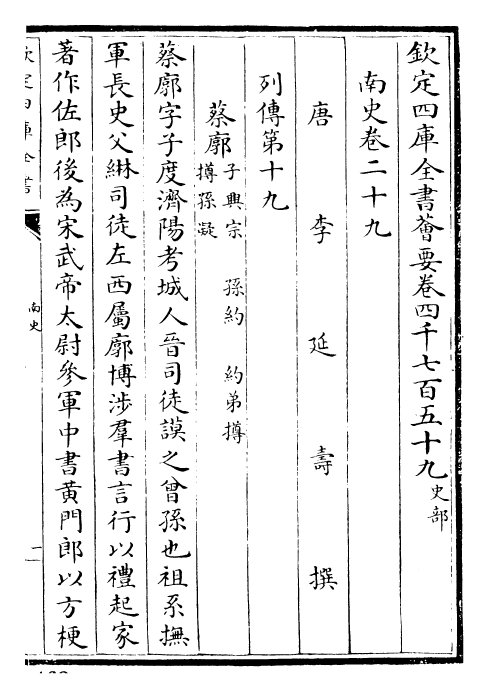 欽定四庫全書薈要卷四千七百五十九 史部
南史卷二十九
唐 李 延 壽 撰
列傳第十九
蔡廓 子興宗 孫約 約弟撙 撙孫凝
蔡廓字子度濟陽考城人晉司徒謨之曾孫也祖系撫
軍長史父綝司徒左西屬廓博涉羣書言行以禮起家
著作佐郎後為宋武帝太尉參軍中書黄門郎以方梗
欽定四庫全書
南史